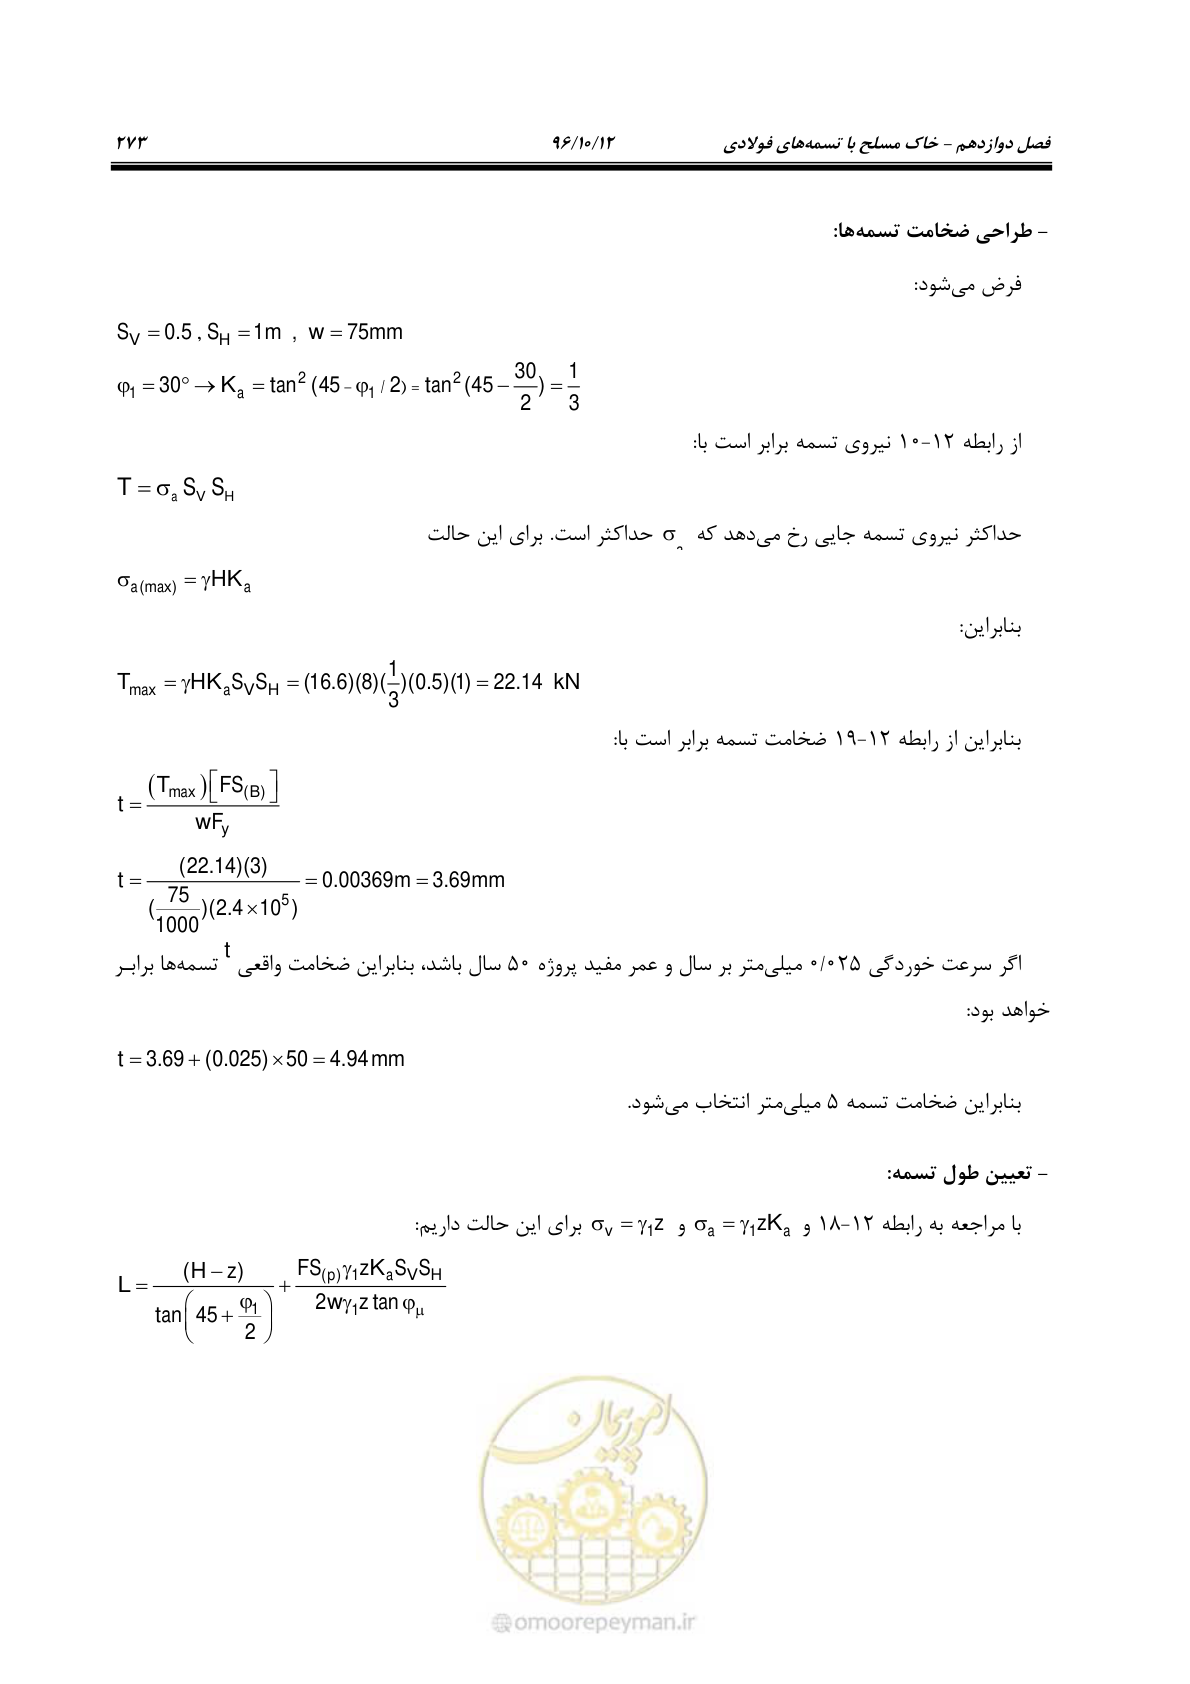 فصل دوازدهم – خاک مسلح با تسمه‌های فولادی ۹۶/۱۰/۱۲ ۲۷۳
– طراحی ضخامت تسمه‌ها:
فرض می‌شود:
S_V = 0.5 , S_H = 1m , w = 75mm
φ₁ = 30° → K_a = tan² (45 – φ₁ / 2) = tan² (45 – 30/2) = 1/3
از رابطه ۱۲-۱۰ نیروی تسمه برابر است با:
T = σ_a S_V S_H
حداکثر نیروی تسمه جایی رخ می‌دهد که σ_a حداکثر است. برای این حالت
σ_a(max) = γHK_a
بنابراین:
T_max = γHK_aS_VS_H = (16.6)(8)(1/3)(0.5)(1) = 22.14 kN
بنابراین از رابطه ۱۲-۱۹ ضخامت تسمه برابر است با:
t = (T_max)[FS_(B)] / wF_y
t = (22.14)(3) / (75/1000)(2.4×10⁵) = 0.00369m = 3.69mm
اگر سرعت خوردگی ۰/۰۲۵ میلی‌متر بر سال و عمر مفید پروژه ۵۰ سال باشد، بنابراین ضخامت واقعی t تسمه‌ها برابـر
خواهد بود:
t = 3.69 + (0.025) × 50 = 4.94 mm
بنابراین ضخامت تسمه ۵ میلی‌متر انتخاب می‌شود.
– تعیین طول تسمه:
با مراجعه به رابطه ۱۲-۱۸ و σ_a = γ₁zK_a و σ_v = γ₁z برای این حالت داریم:
L = (H – z) / tan(45 + φ₁/2) + FS_(p)γ₁zK_aS_VS_H / 2wγ₁z tan φ_μ
امور پیمان
@omoorepeyman.ir